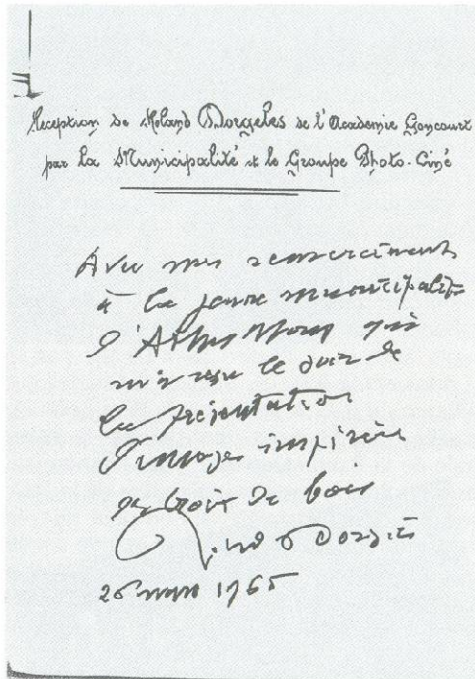 Réception de Roland Dorgelès de l'Académie Goncourt
par la Municipalité et le Groupe Photo-Ciné
Avec mes remerciements
à la jeune municipalité
d'Athis Mons qui
m'a reçu le soir de
la présentation
d'images inspirées
des Croix de bois
Roland Dorgelès
26 mars 1965